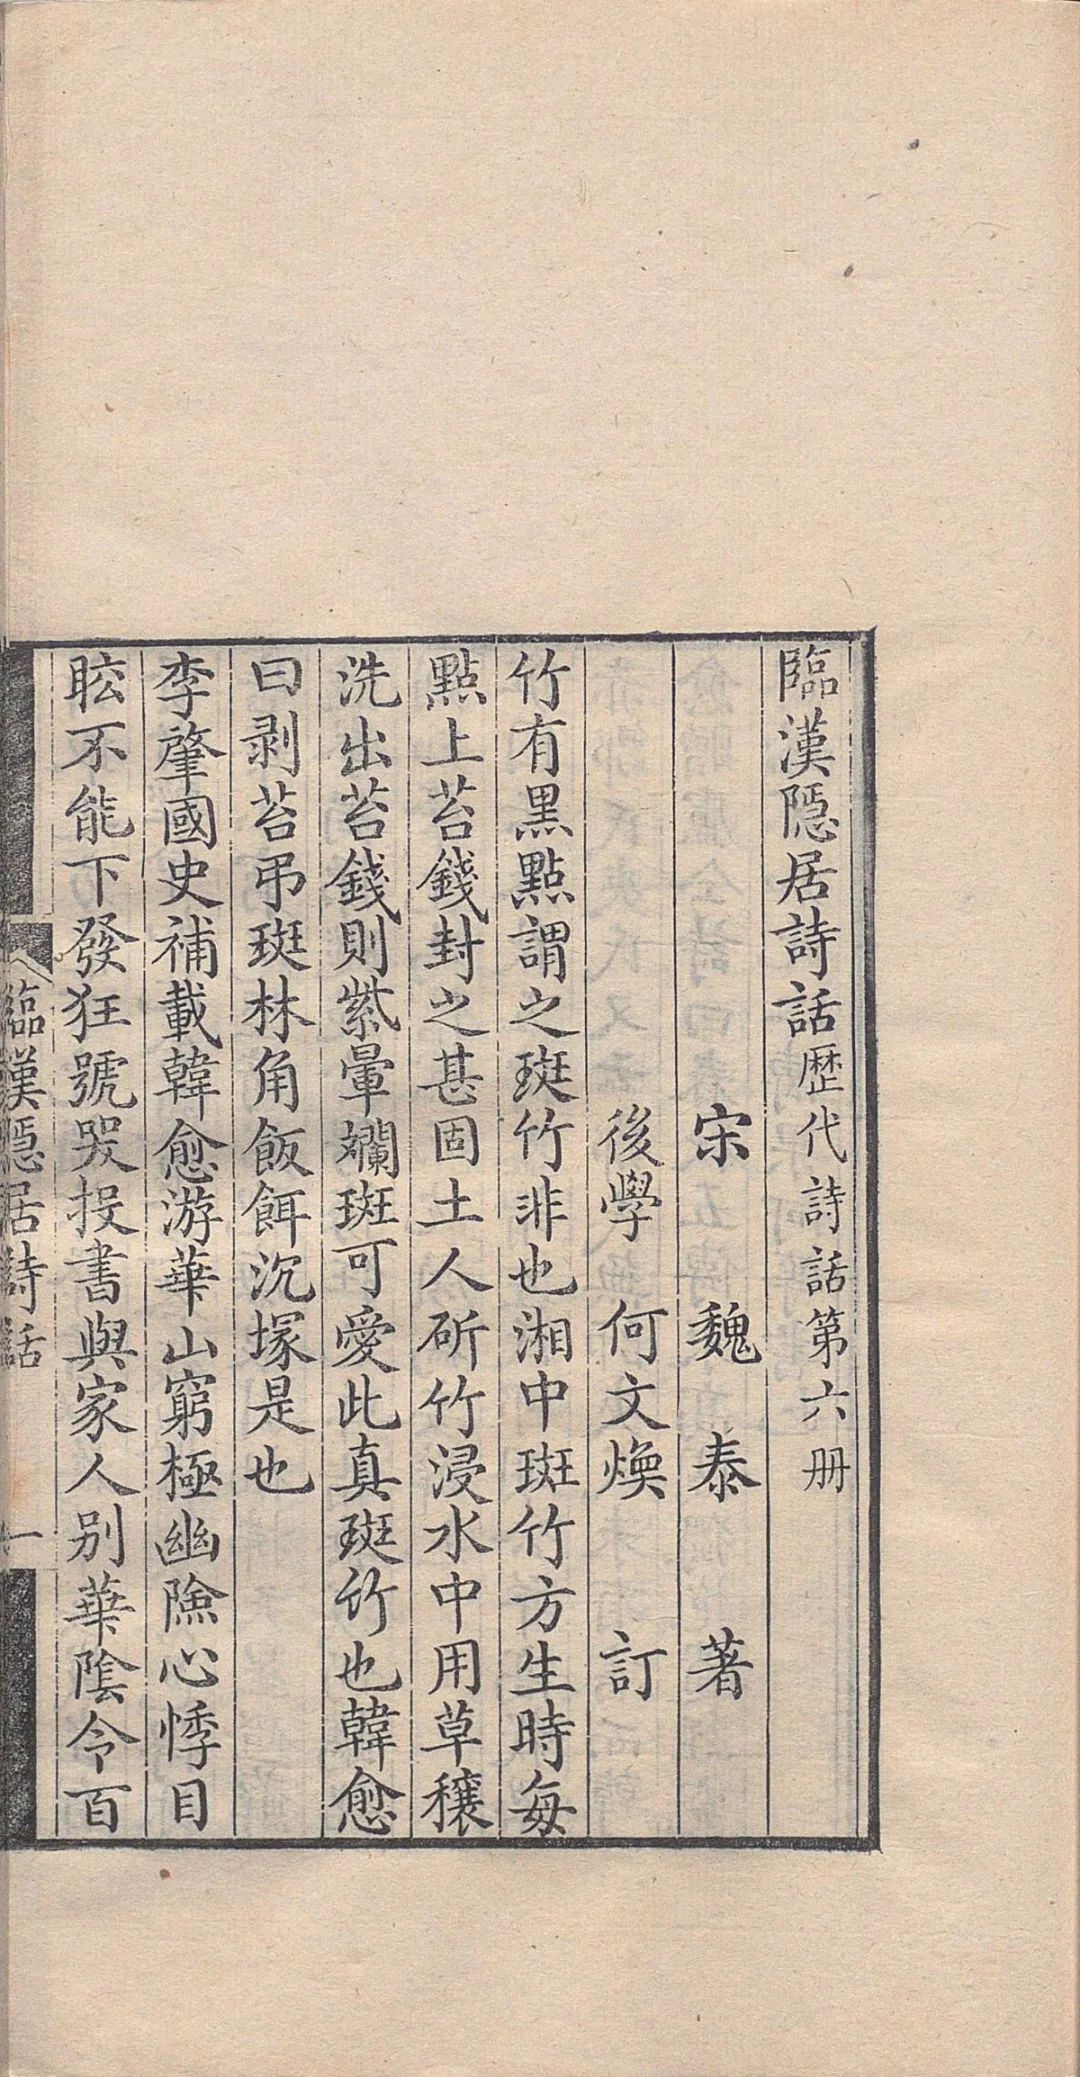 臨漢隱居詩話歷代詩話第六册
宋 魏 泰 著
後學 何文煥 訂
竹有黑點謂之斑竹非也湘中斑竹方生時每
點上苔錢封之甚固土人斫竹浸水中用草穰
洗出苔錢則紫暈斕斑可愛此真斑竹也韓愈
曰剥苔弔斑林角飯餌沉塚是也
李肇國史補載韓愈游華山窮極幽險心悸目
眩不能下發狂號哭投書與家人别華陰令百
臨漢隱居詩話 一